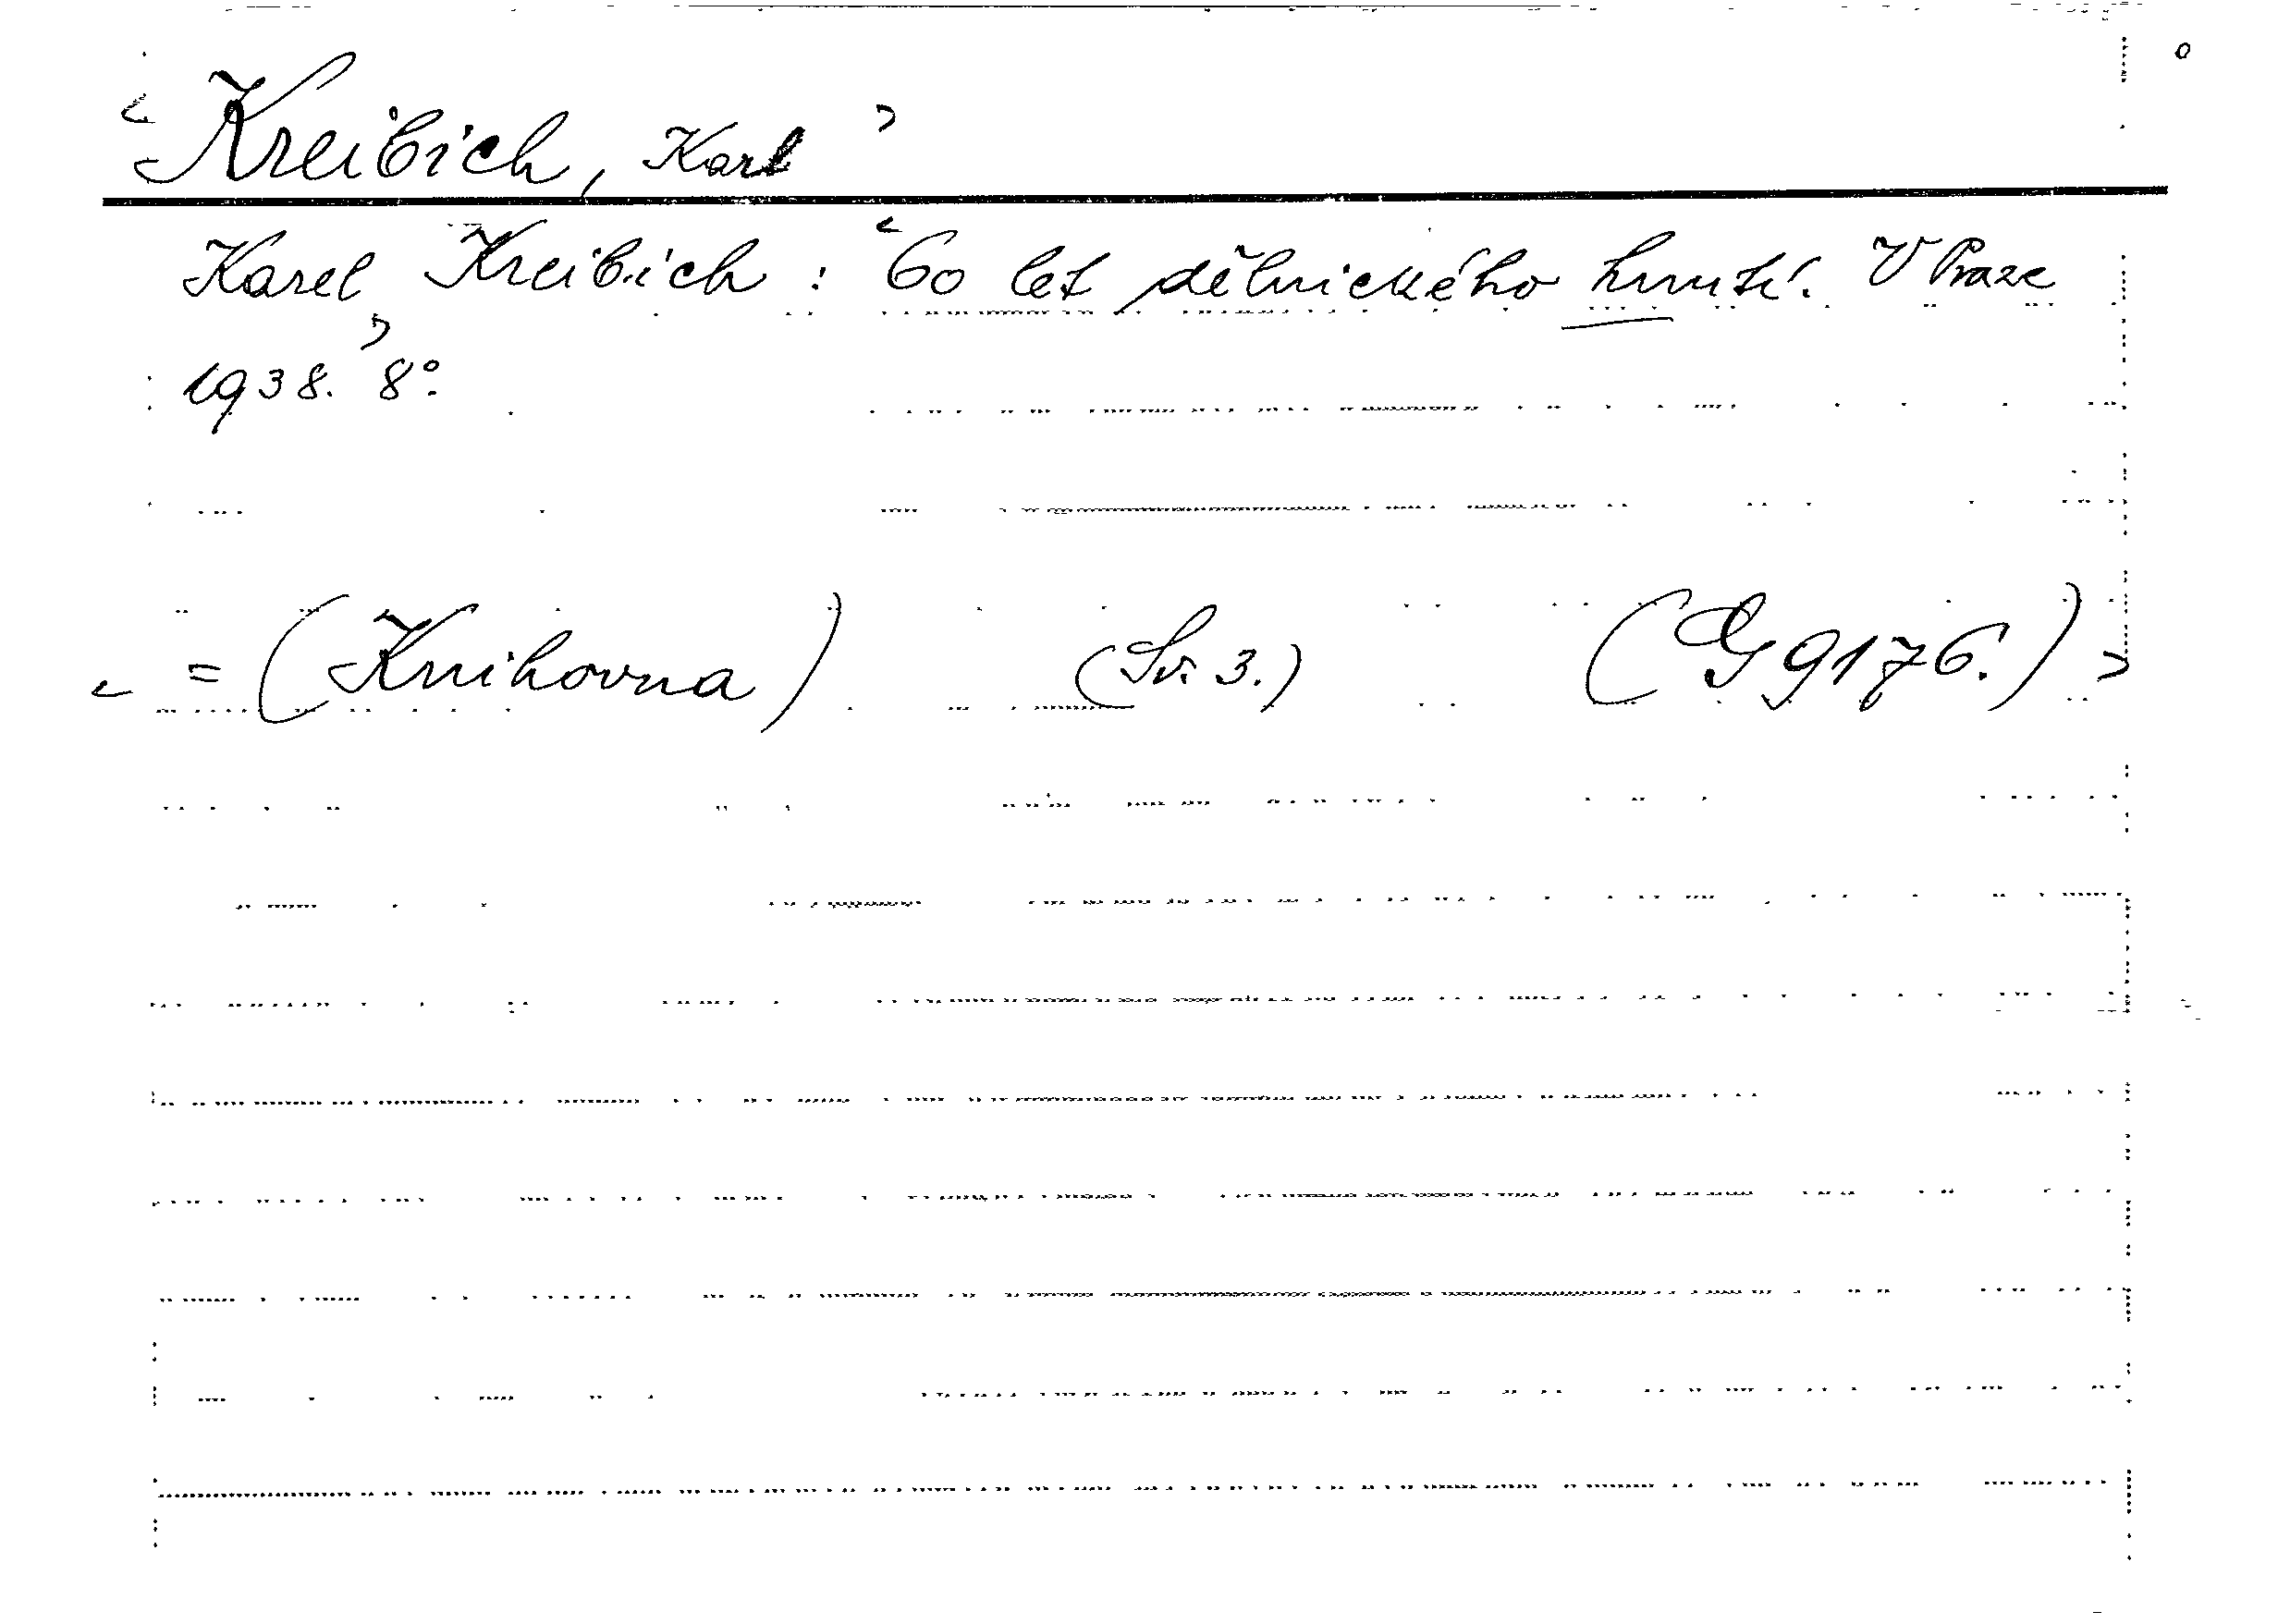 < Kreibich, Karl >
Karel Kreibich : < 60 let dělnického hnutí. V Praze
1938. > 8°.
< = (Knihovna) (Sv. 3.) (G 9176.) >